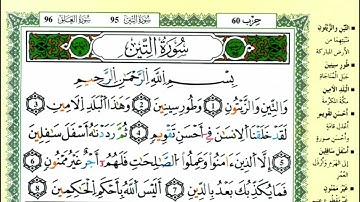 96 سُورَةُ العَلَق
95 سُورَةُ التِّين
حِزب 60
سُورَةُ التِّينِ
بِسْمِ اللَّهِ الرَّحْمَٰنِ الرَّحِيمِ
وَالتِّينِ وَالزَّيْتُونِ ١ وَطُورِ سِينِينَ ٢ وَهَٰذَا الْبَلَدِ الْأَمِينِ ٣
لَقَدْ خَلَقْنَا الْإِنسَانَ فِي أَحْسَنِ تَقْوِيمٍ ٤ ثُمَّ رَدَدْنَاهُ أَسْفَلَ سَافِلِينَ
٥ إِلَّا الَّذِينَ ءَامَنُوا وَعَمِلُوا الصَّالِحَاتِ فَلَهُمْ أَجْرٌ غَيْرُ مَمْنُونٍ ٦
فَمَا يُكَذِّبُكَ بَعْدُ بِالدِّينِ ٧ أَلَيْسَ اللَّهُ بِأَحْكَمِ الْحَاكِمِينَ ٨
التِّينِ وَالزَّيْتُونِ
الأرض المباركة
طُورِ سِينِينَ
جبل المناجاة
البَلَدِ الأمِينِ
مكة المكرمة
أحْسَنِ تَقْوِيمٍ
أسْفَلَ سَافِلِينَ